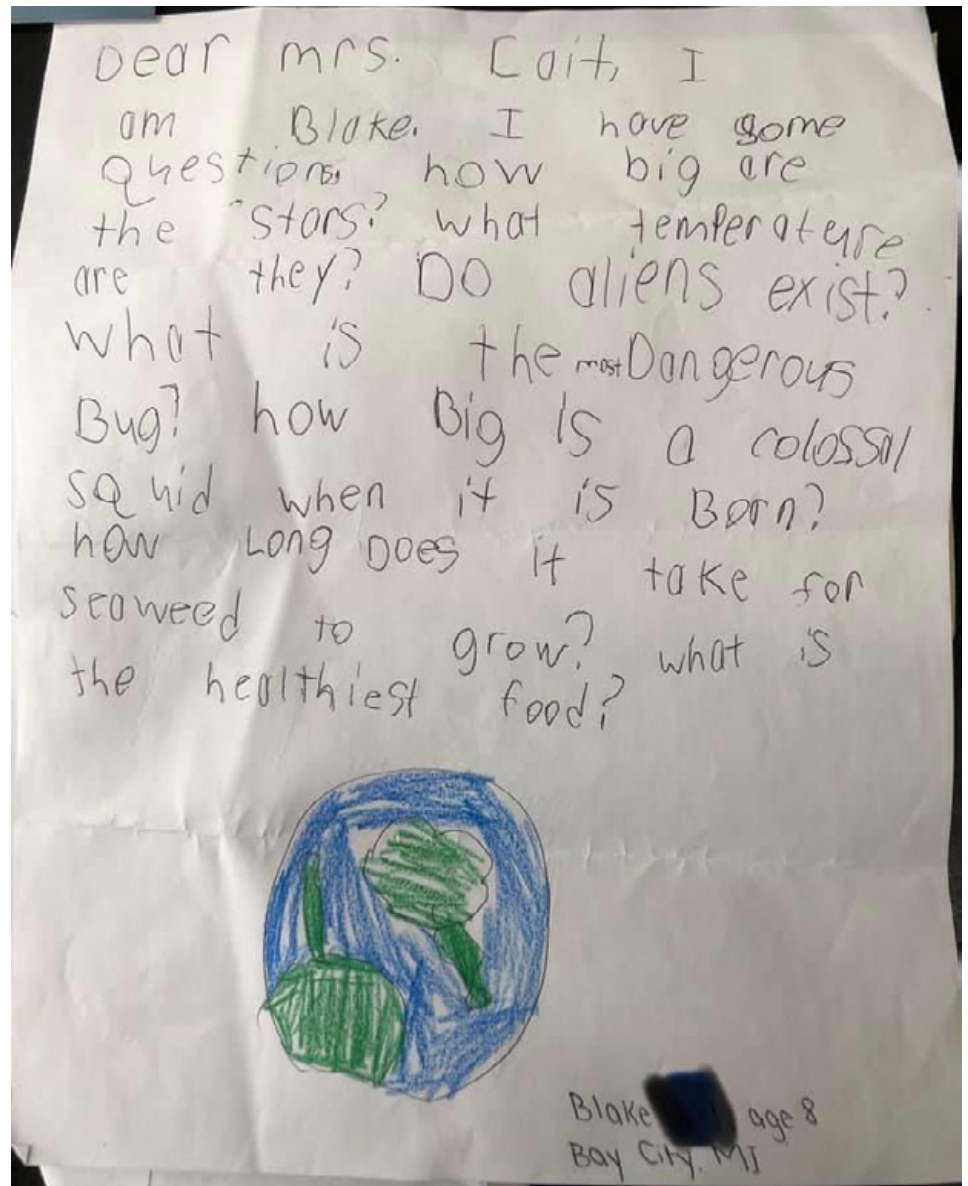 Dear mrs. Cait, I
am Blake. I have some
questions, how big are
the stars? what temperature
are they? Do aliens exist?
what is the most Dangerous
Bug? how Big Is a colossal
squid when it is Born?
how Long Does it take for
seaweed to grow? what is
the healthiest food?
Blake age 8
Bay City, MI